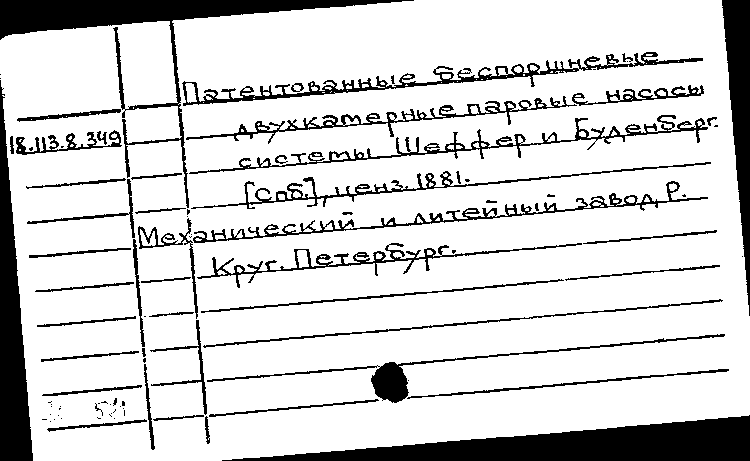 Патентованные беспоршневые
18.113.8.349
двухкатерные паровые насосы
системы Шеффер и Буденберг.
[Спб.], ценз. 1881.
Механический и литейный завод, Р.
Круг. Петербург.